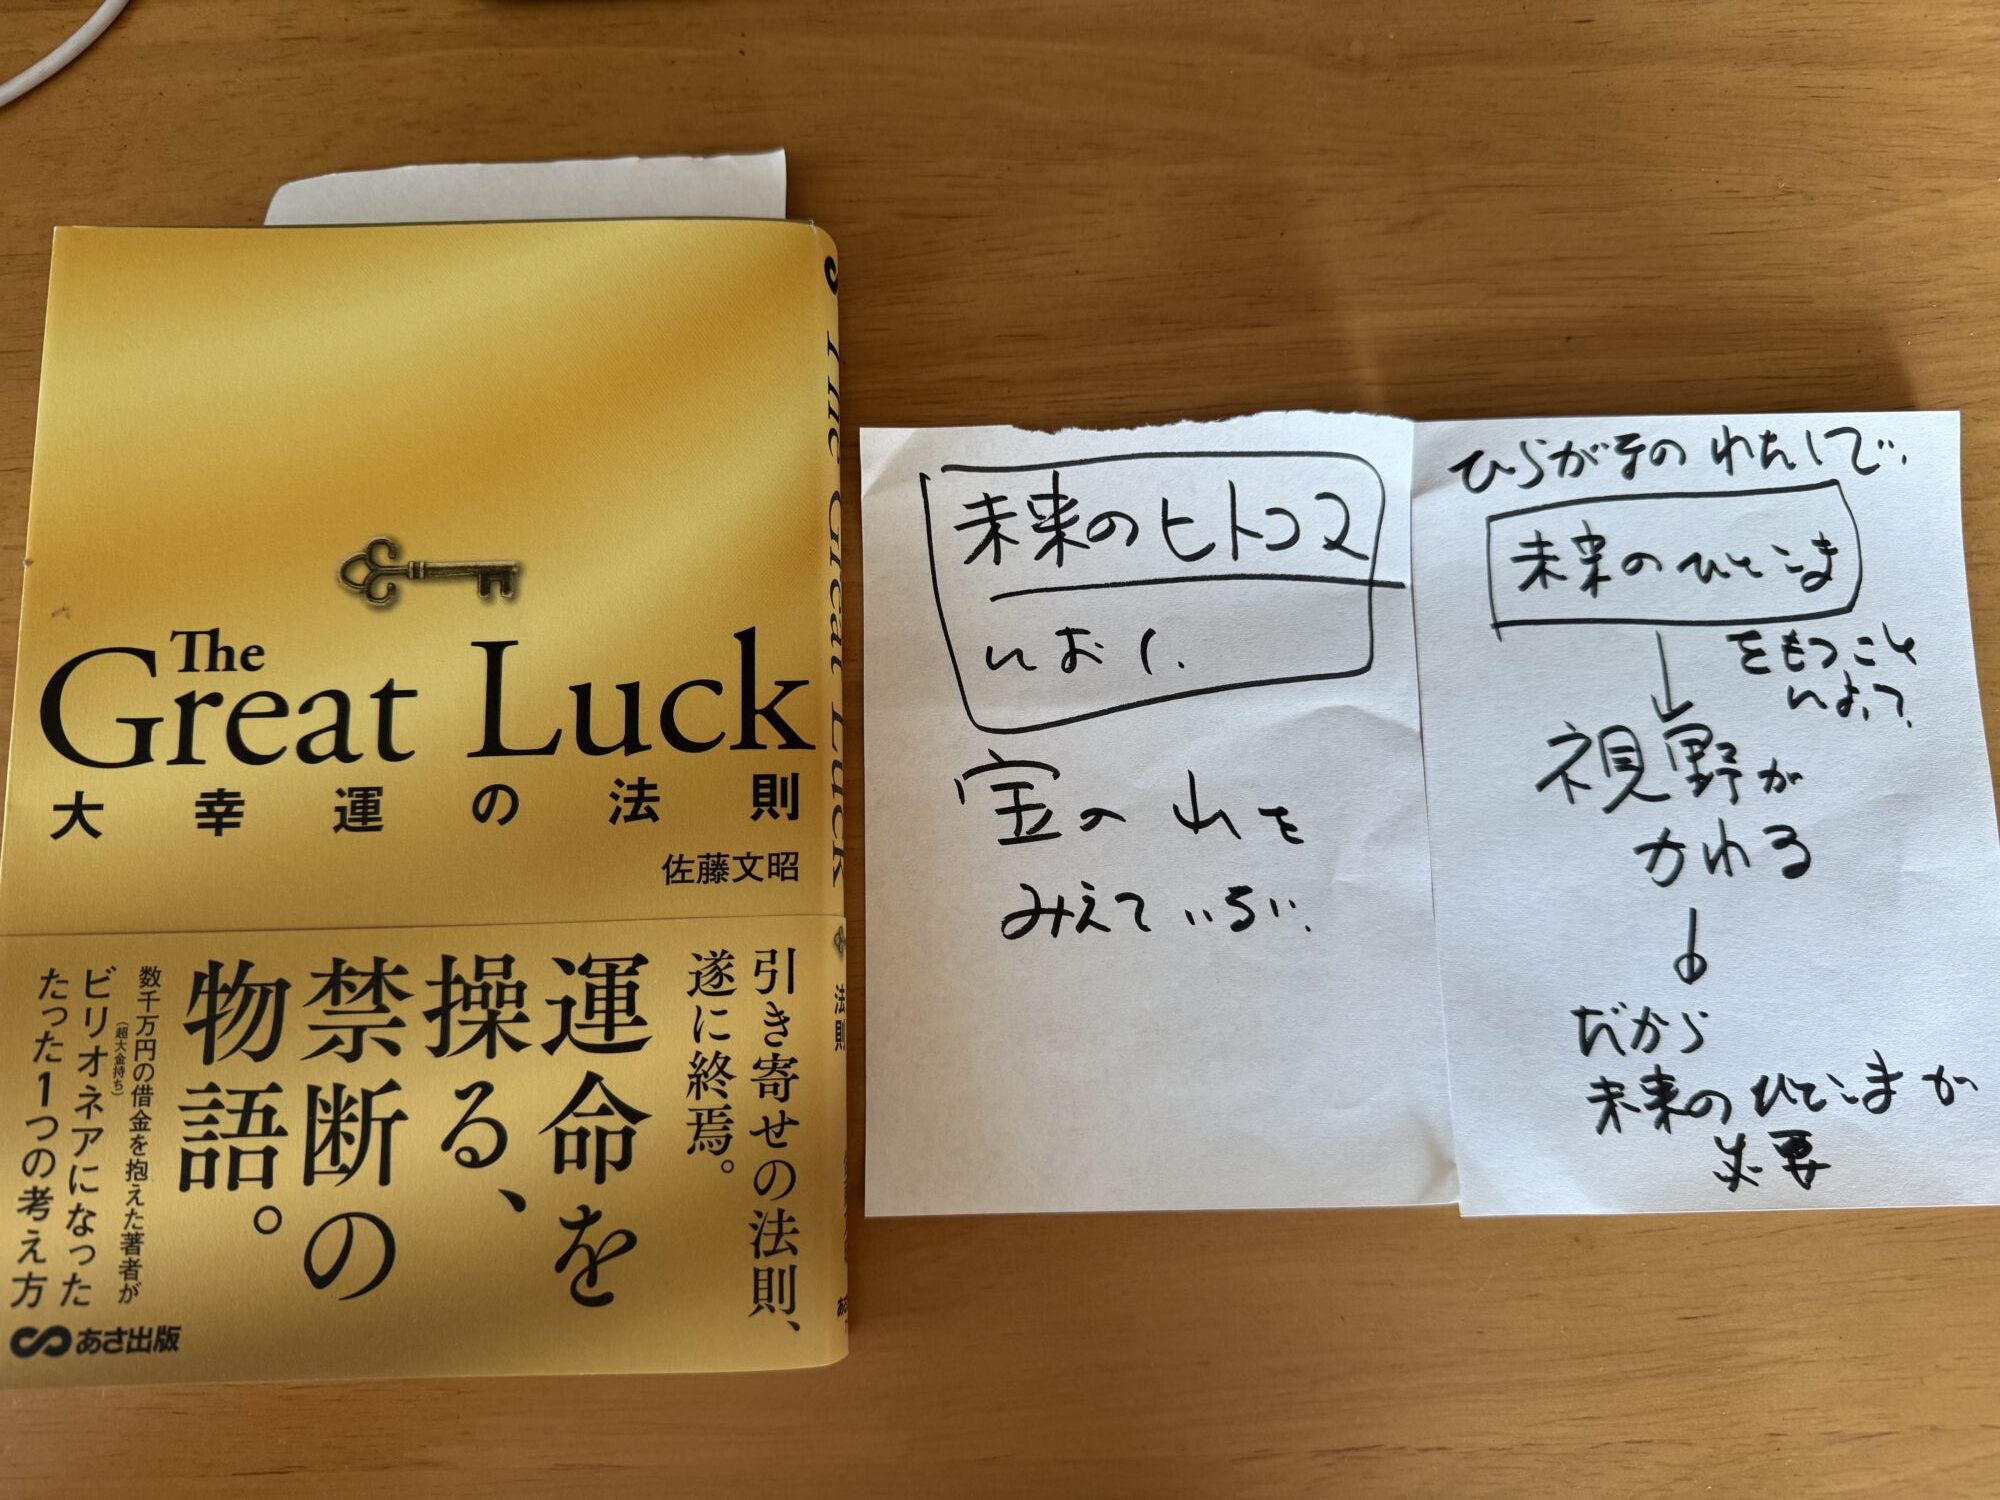 The
Great Luck
大幸運の法則
佐藤文昭
引き寄せの法則、
遂に終焉。
運命を
操る、
禁断の
物語。
数千万円の借金を抱えた著者が
(超大金持ち)
ビリオネアになった
たった1つの考え方
あさ出版
The Great Luck
法則
未来のヒトコマ
宝の
みえて
ひらがなのわたしで、
未来のひとこま
をもつこと
によって、
視野が
かわる
だから
未来のひとこまが
必要